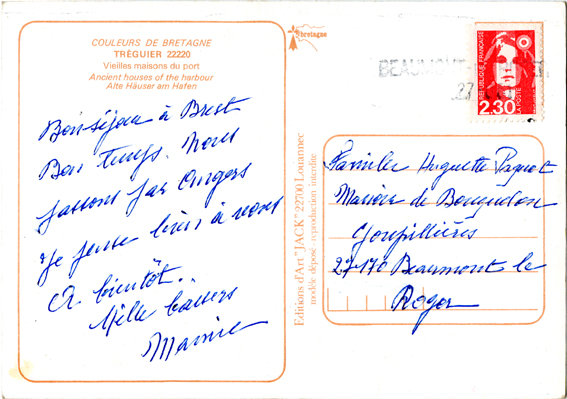 COULEURS DE BRETAGNE
TRÉGUIER 22220
Vieilles maisons du port
Ancient houses of the harbour
Alte Häuser am Hafen
Bon séjour à Brest
Bon temps. Nous
passons par Angers
Je pense bien à vous
A bientôt.
Mille baisers
Mamie
Bretagne
Editions d'Art "JACK" 22700 Louannec
modèle déposé - reproduction interdite
BEAUMONT
27
REPUBLIQUE FRANÇAISE
LA POSTE
2.30
Famille Huguette Paquot
Manoir de Bougudon
Goupillières
27170 Beaumont le
Roger